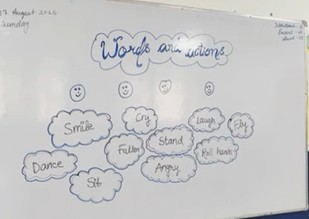 Sunday
Words and actions
Smile
Cry
Laugh
Fly
Dance
Fallen
Stand
Roll hands
Sit
Angry